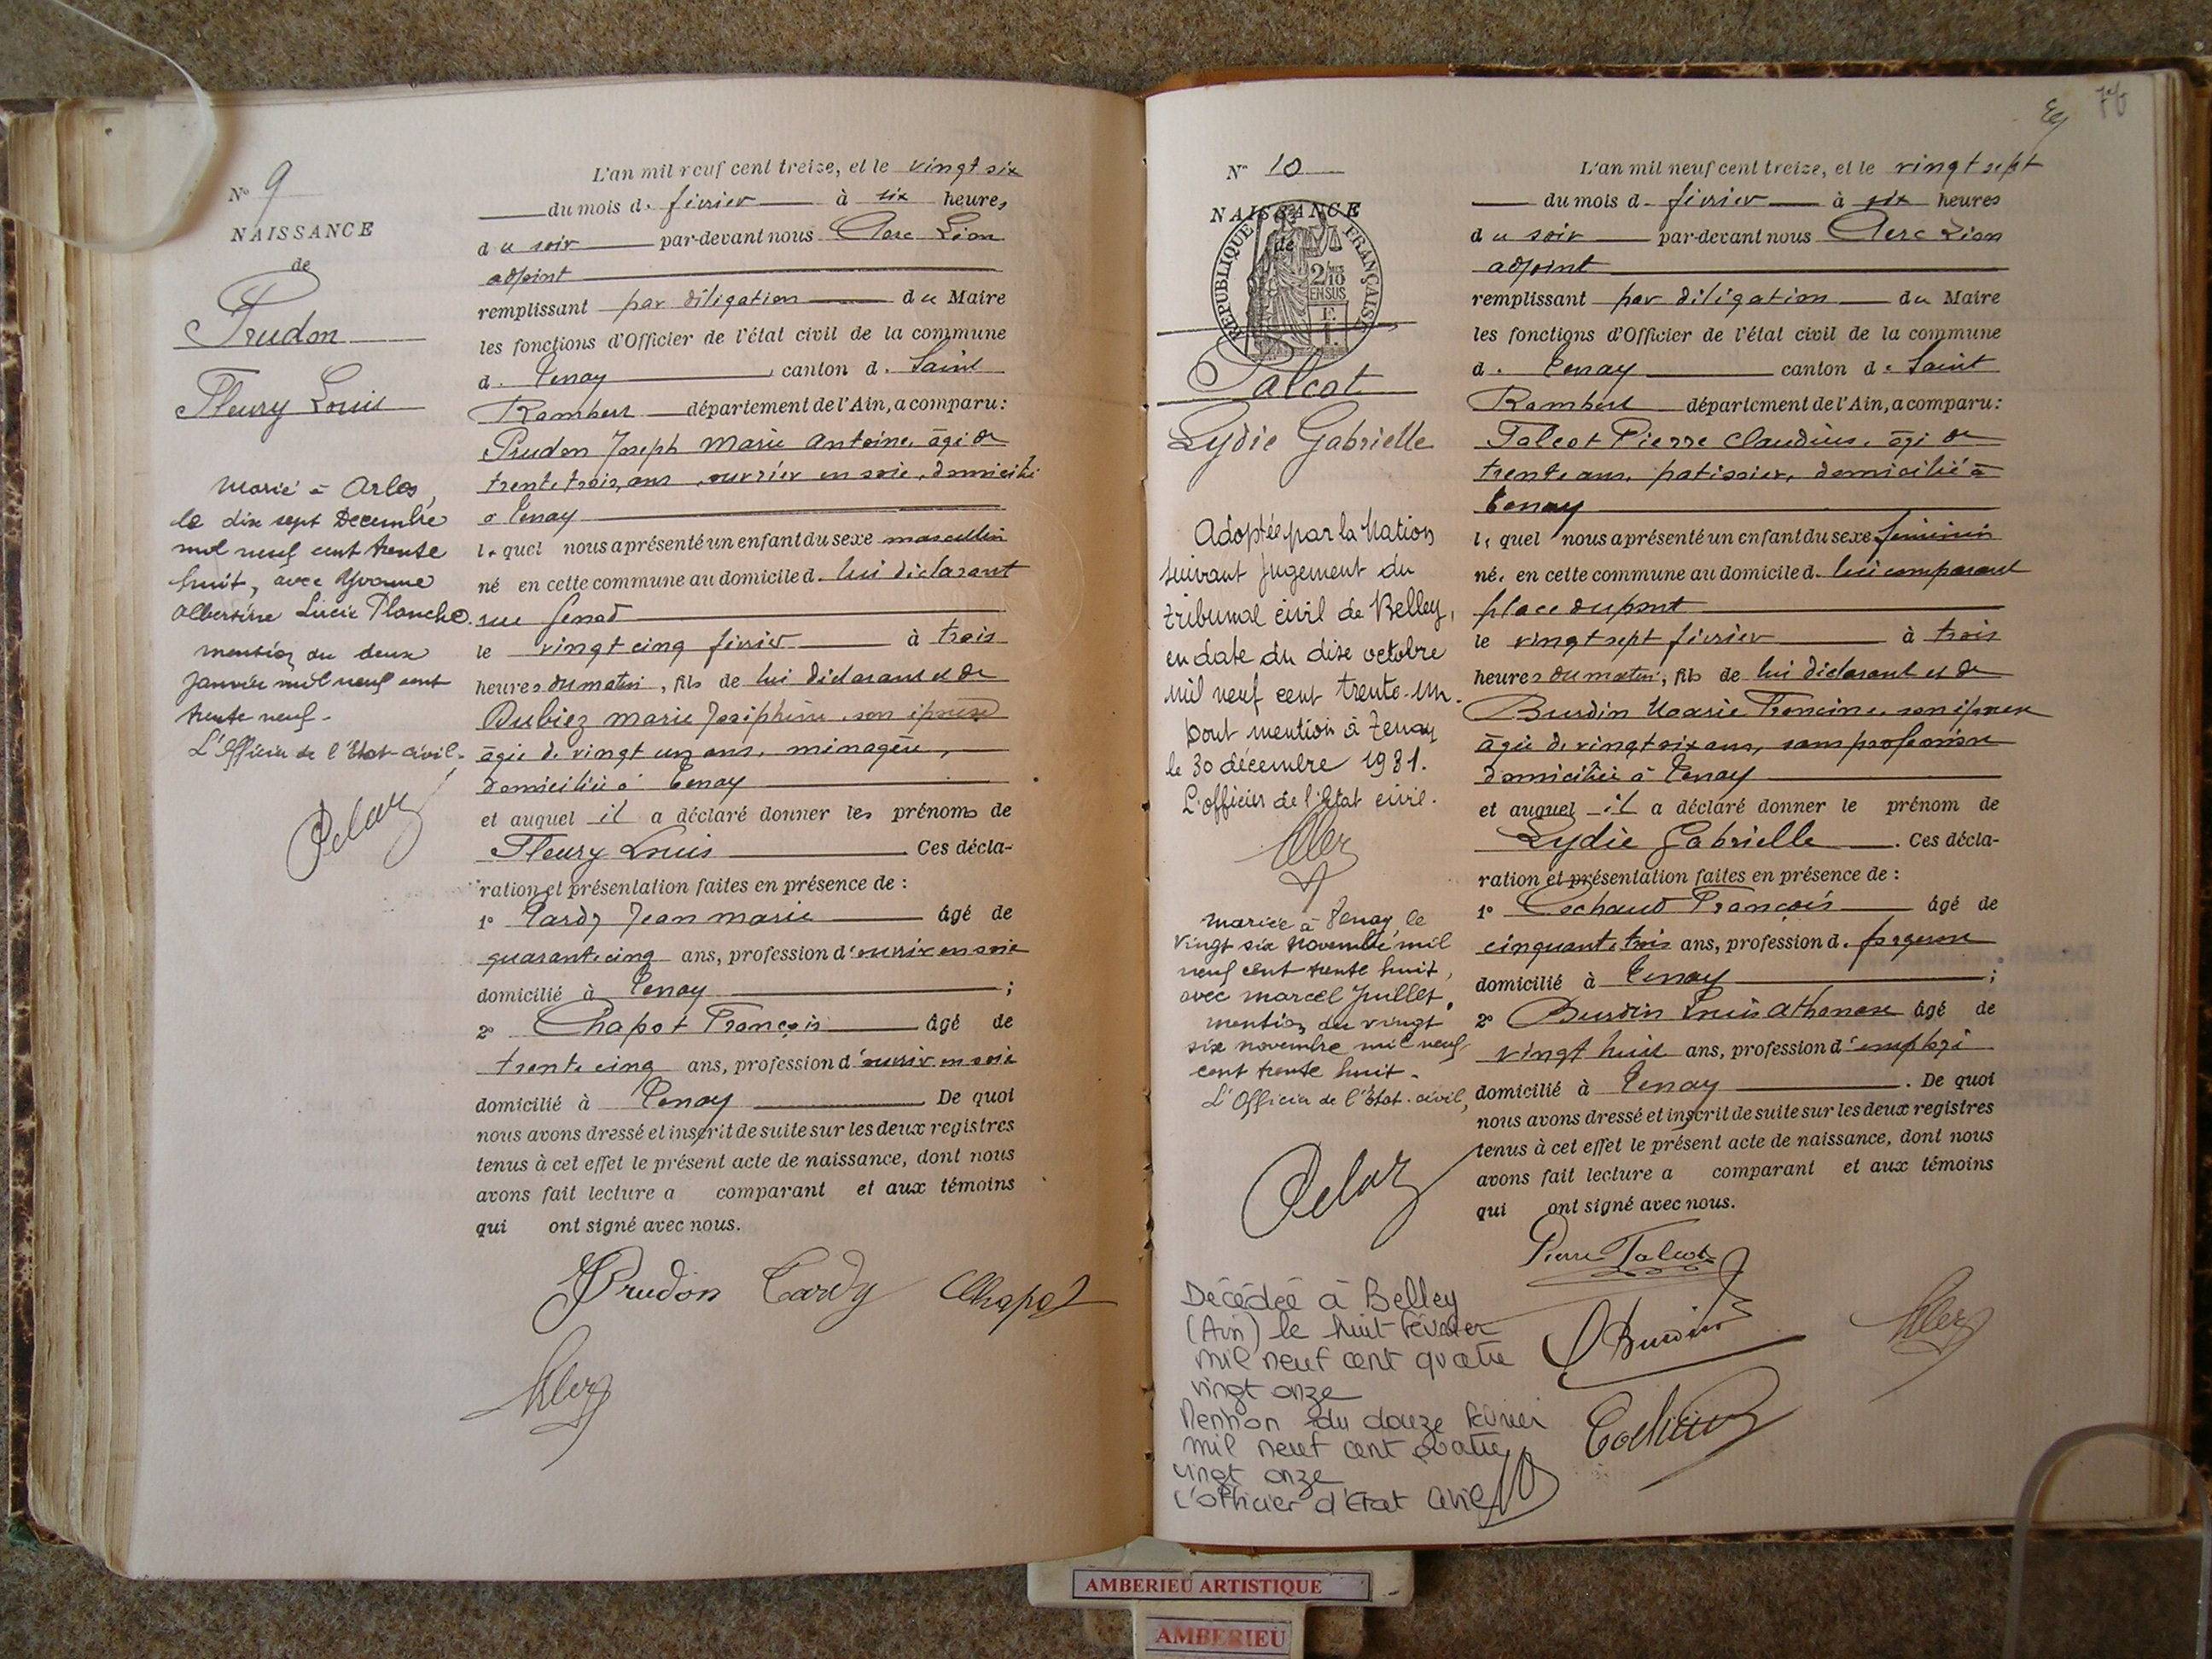 N° 9
NAISSANCE
de
Prudon
Fleury Louis
Marié à Arles,
le dix sept Decembre
mil neuf cent trente
huit, avec Yvonne
Albertine Lucie Planche.
mention du deux
Janvier mil neuf cent
trente neuf.
L'Officier de l'Etat-civil.
Pelaz
L'an mil neuf cent treize, et le vingt six
du mois de février à six heures
du soir par-devant nous Clerc Léon
adjoint
remplissant par délégation du Maire
les fonctions d'Officier de l'état civil de la commune
de Tenay, canton de Saint
Rambert département de l'Ain, a comparu:
Prudon Joseph Marie Antoine, âgé de
trente trois ans, ouvrier en soie, domicilié
à Tenay
lequel nous a présenté un enfant du sexe masculin
né en cette commune au domicile de lui déclarant
rue
le vingt cinq février à trois
heures du matin, fils de lui déclarant et de
Dubiez Marie Joséphine, son épouse
âgée de vingt un ans, ménagère,
domiciliée à Tenay
et auquel il a déclaré donner les prénoms de
Fleury Louis. Ces décla-
ration et présentation faites en présence de :
1° Tardy Jean Marie âgé de
quarante cinq ans, profession d'ouvrier en soie
domicilié à Tenay ;
2° Chapot François âgé de
trente cinq ans, profession d'ouvrier en soie
domicilié à Tenay. De quoi
nous avons dressé et inscrit de suite sur les deux registres
tenus à cet effet le présent acte de naissance, dont nous
avons fait lecture a comparant et aux témoins
qui ont signé avec nous.
Prudon Tardy Chapot
76
N° 10
NAISSANCE
de
REPUBLIQUE FRANÇAISE
2/10 EN SUS
Talcot
Lydie Gabrielle
Adoptée par la Nation
suivant jugement du
tribunal civil de Belley,
en date du dix octobre
mil neuf cent trente-un.
Dont mention à Tenay
le 30 décembre 1931.
L'officier de l'Etat civil.
Mariée à Tenay le
vingt six Novembre mil
neuf cent trente huit,
avec Marcel Juillet.
mention du vingt
six novembre mil neuf
cent trente huit.
L'Officier de l'Etat-civil,
Pelaz
Décédée à Belley
(Ain) le huit février
mil neuf cent quatre
vingt onze
Mention du douze février
mil neuf cent quatre
vingt onze
L'officier d'Etat Civil
L'an mil neuf cent treize, et le vingt sept
du mois de février à six heures
du soir par-devant nous Clerc Léon
adjoint
remplissant par délégation du Maire
les fonctions d'Officier de l'état civil de la commune
de Tenay canton de Saint
Rambert département de l'Ain, a comparu:
Talcot Pierre Claudius, âgé de
trente ans, patissier, domicilié à
Tenay
lequel nous a présenté un enfant du sexe féminin
né, en cette commune au domicile de lui comparant
place du pont
le vingt sept février à trois
heures du matin, fils de lui déclarant et de
Burdin Marie Francine, son épouse
âgée de vingt six ans, sans profession
domiciliée à Tenay
et auquel il a déclaré donner le prénom de
Lydie Gabrielle. Ces décla-
ration et présentation faites en présence de :
1° François âgé de
cinquante trois ans, profession de forgeron
domicilié à Tenay ;
2° Burdin Louis Athanase âgé de
vingt huit ans, profession d'employé
domicilié à Tenay. De quoi
nous avons dressé et inscrit de suite sur les deux registres
tenus à cet effet le présent acte de naissance, dont nous
avons fait lecture a comparant et aux témoins
qui ont signé avec nous.
Pierre Talcot
Burdin
AMBERIEU ARTISTIQUE
AMBERIEU